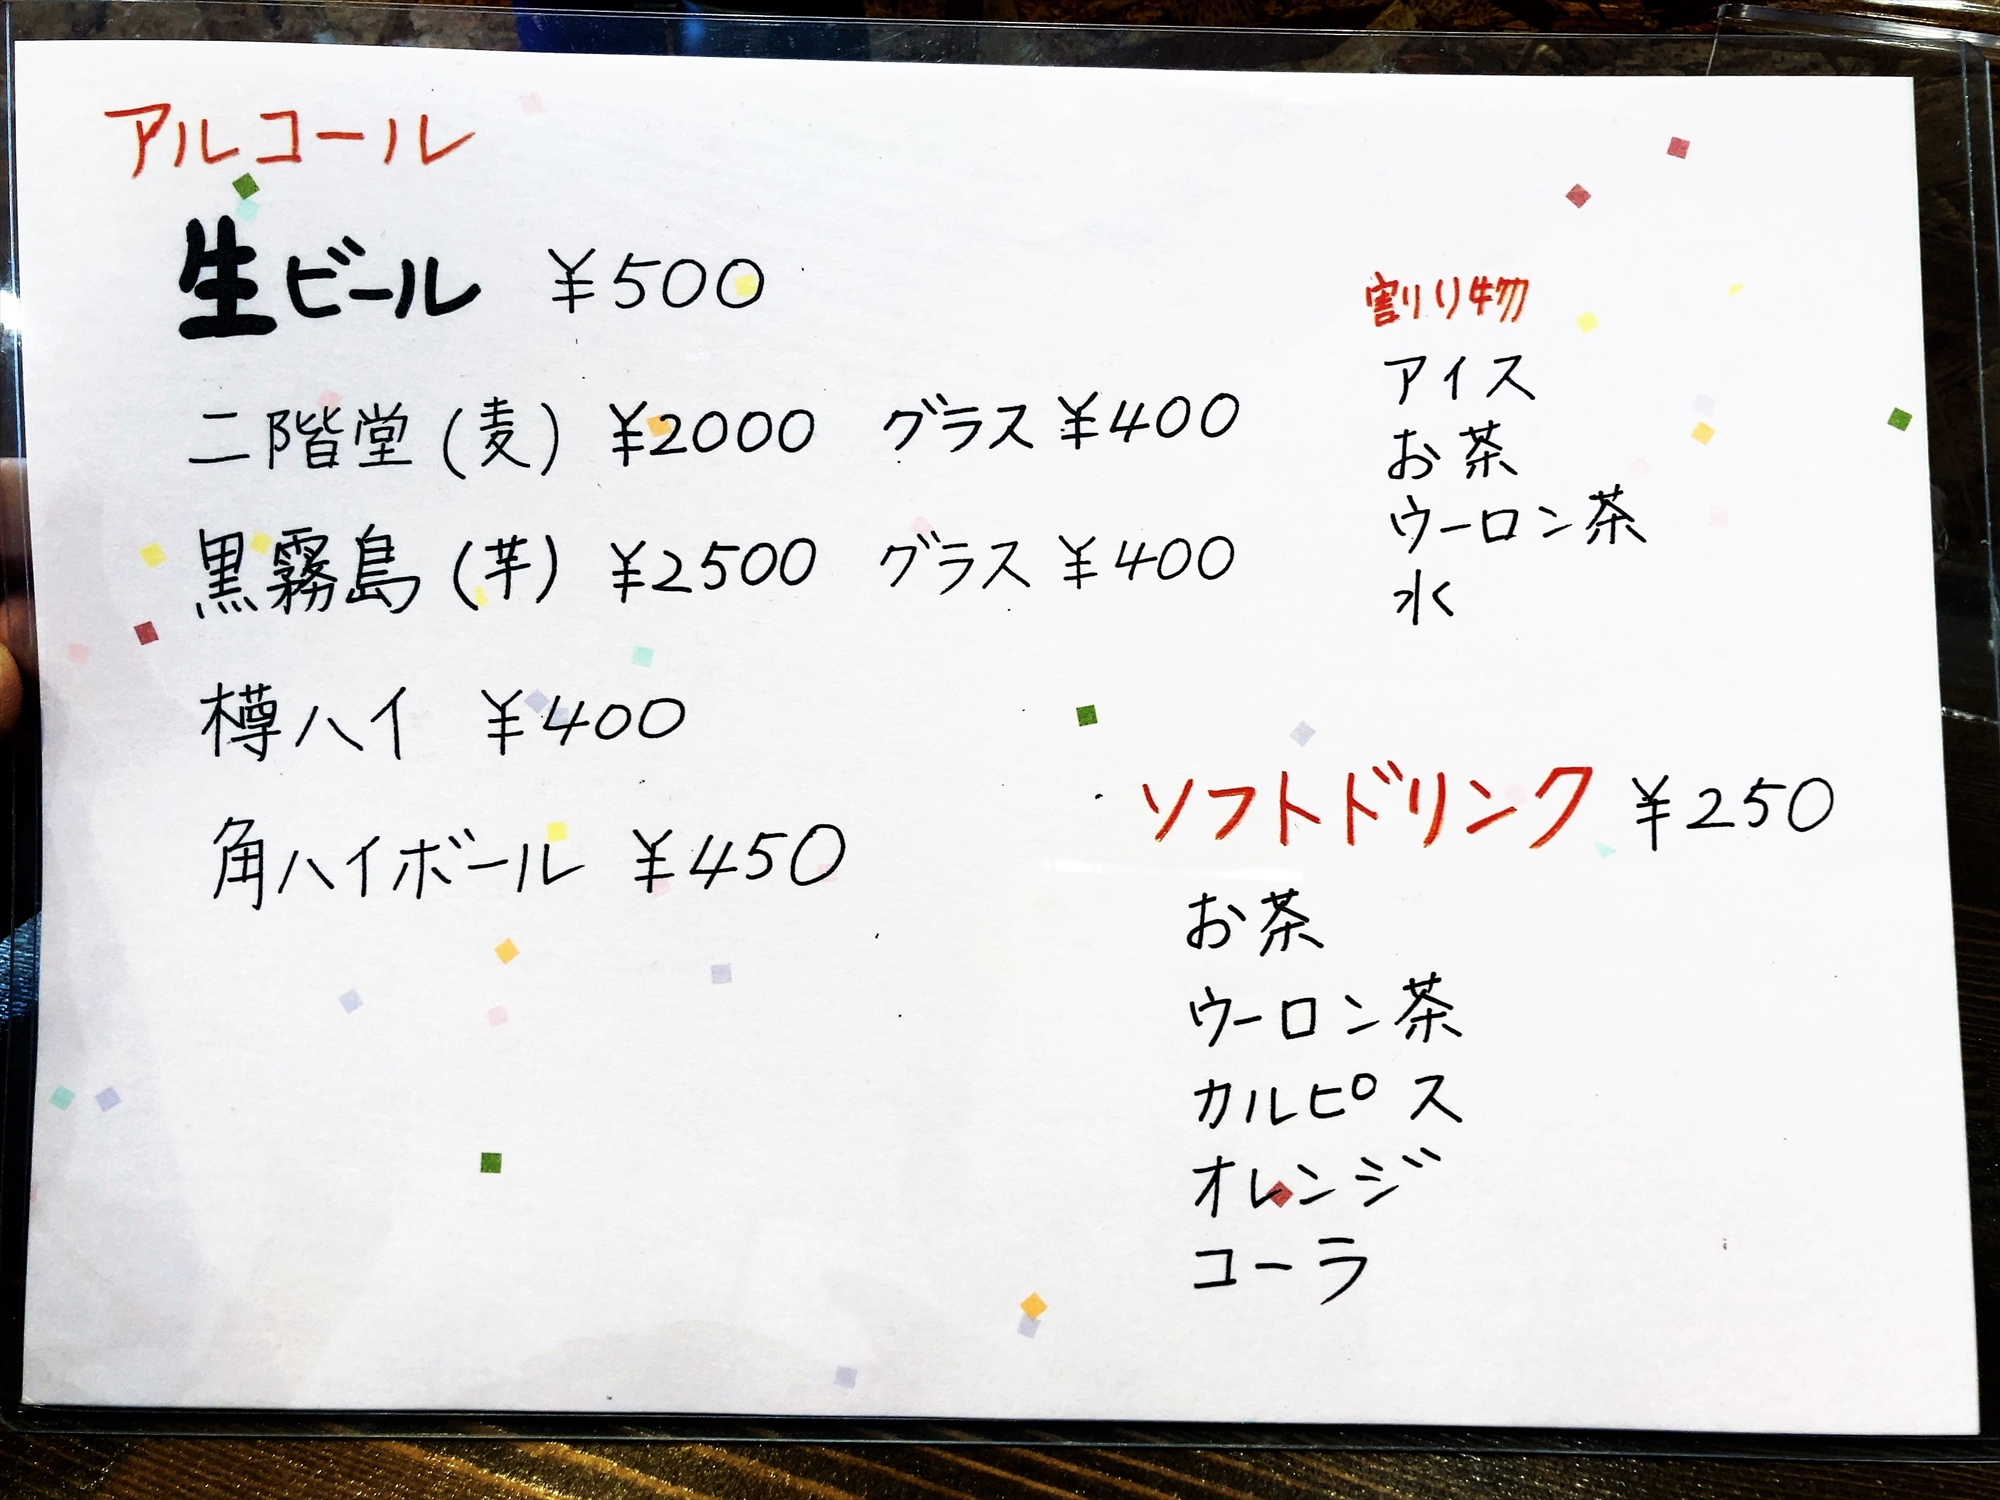 アルコール
生ビール ¥500
二階堂(麦) ¥2000 グラス ¥400
黒霧島(芋) ¥2500 グラス ¥400
樽ハイ ¥400
角ハイボール ¥450
割り物
アイス
お茶
ウーロン茶
水
ソフトドリンク ¥250
お茶
ウーロン茶
カルピス
オレンジ
コーラ